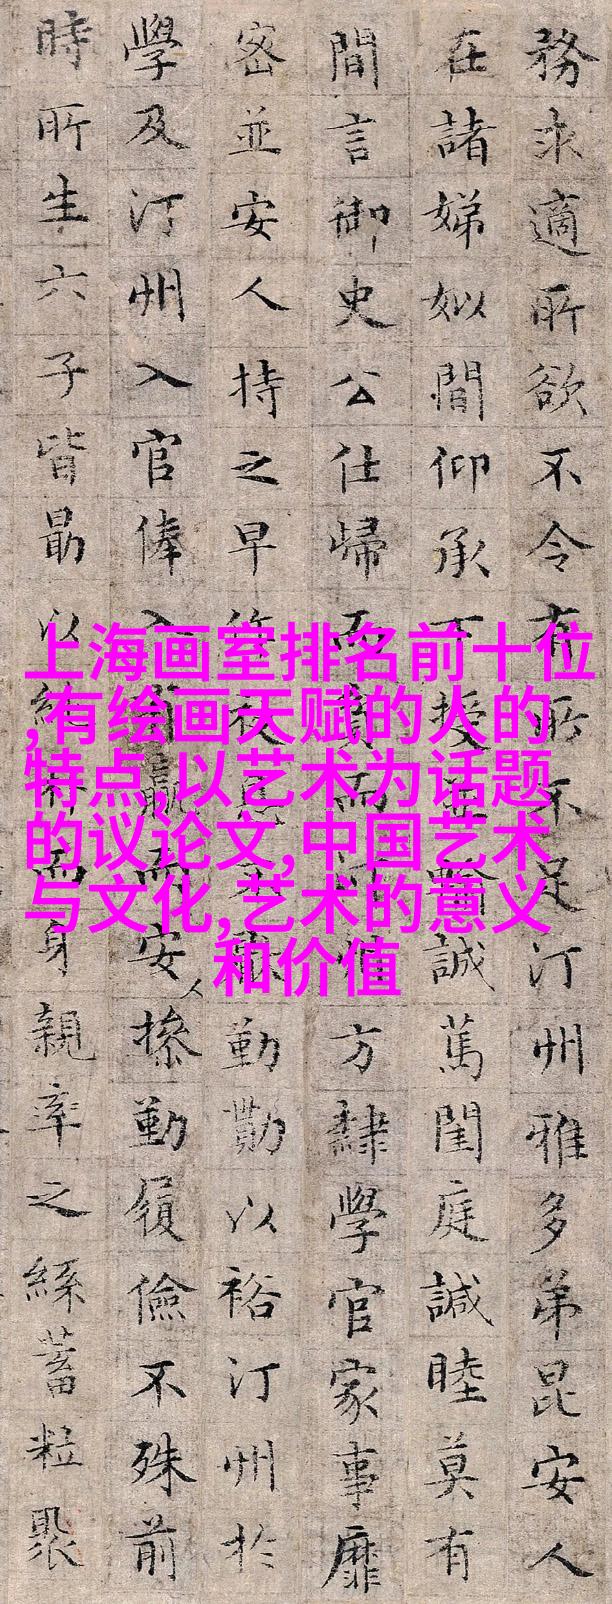 務求適所欲不令有所不足汀州雅多弟昆安人
在諸娣姒間仰承下授誠萬閨庭諴睦莫有
間言御史公仕歸而貧而方隸學官家事靡
密並安人持之早作夜勤勩以裕汀州於
學及汀州入官俸入而安人操勤履儉不殊前
時所生六子皆勗以經術而身親率之絲蓄粒聚
上海画室排名前十位
,有绘画天赋的人的
特点,以艺术为话题
的议论文,中国艺术
与文化,艺术的意义
和价值